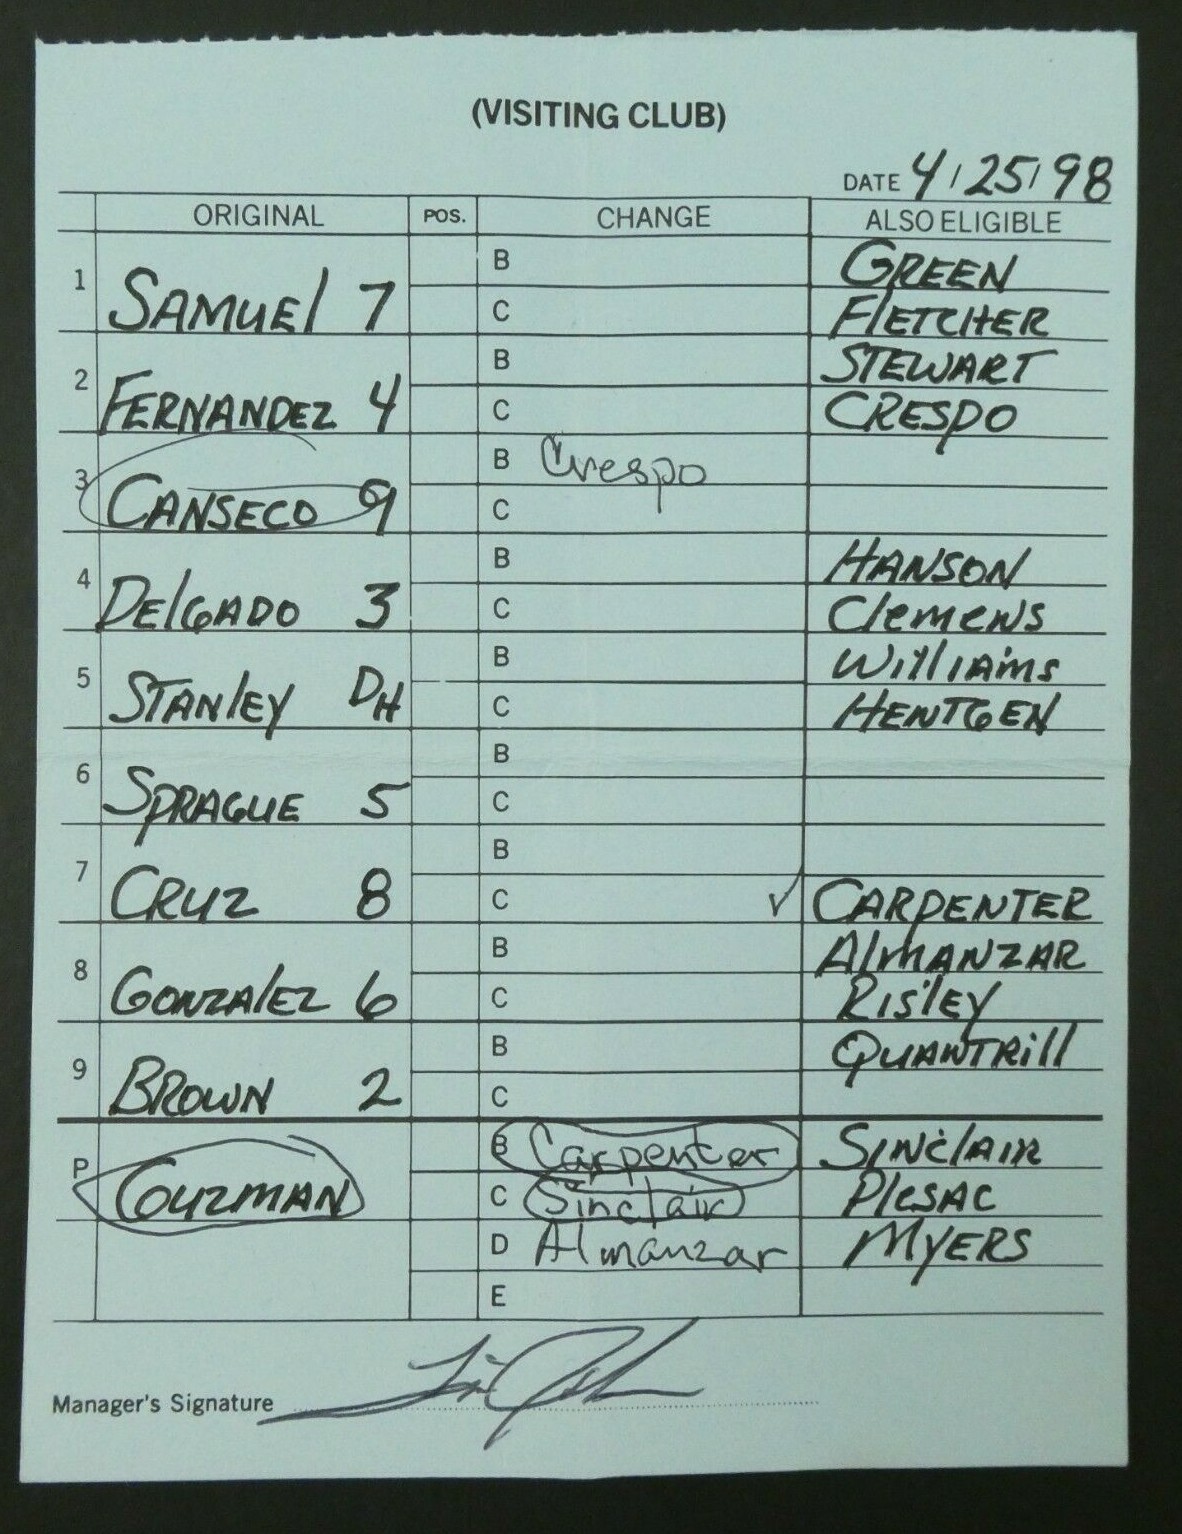 (VISITING CLUB)
DATE 4/25/98
ORIGINAL POS. CHANGE ALSO ELIGIBLE
1 SAMUEL 7 B GREEN
C FLETCHER
2 FERNANDEZ 4 B STEWART
C CRESPO
3 CANSECO 9 B Crespo
C
4 DELGADO 3 B HANSON
C Clemens
5 STANLEY DH B WILLIAMS
C HENTGEN
6 SPRAGUE 5 B
C
7 CRUZ 8 B
C ✓ CARPENTER
8 GONZALEZ 6 B ALMANZAR
C RISLEY
9 BROWN 2 B QUANTRILL
C
P GUZMAN B Carpenter SINCLAIR
C Sinclair PLESAC
D Almanzar MYERS
E
Manager's Signature